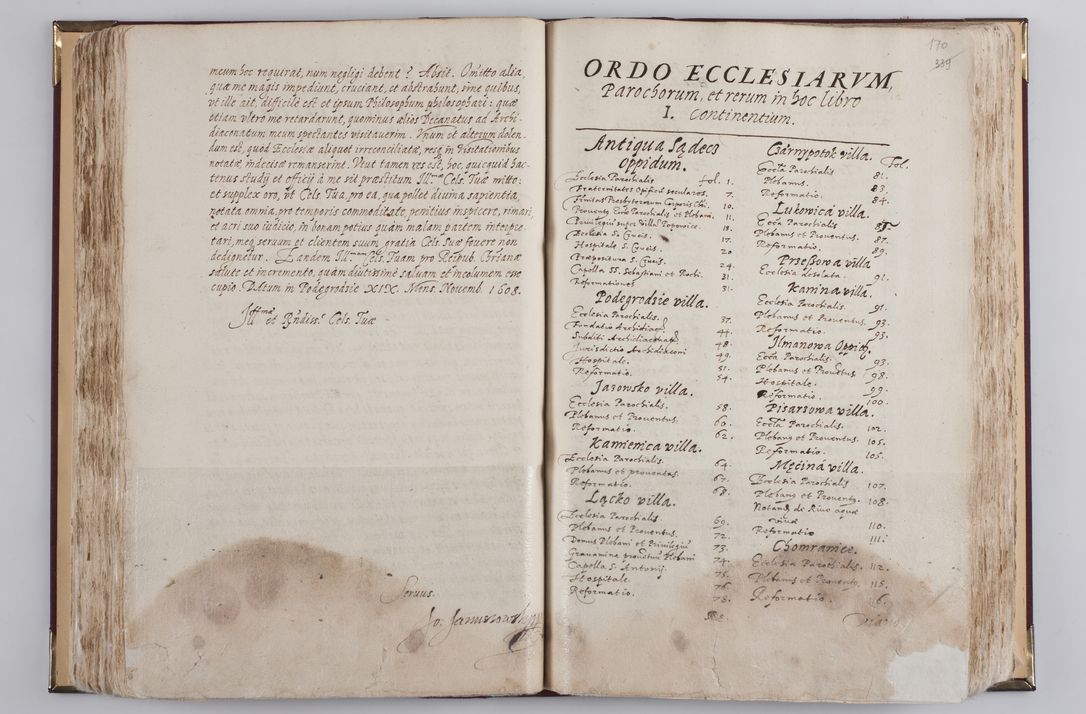 meum hoc requirat, num negligi debent? Absit. Omitto alia,
quæ me magis impediunt, cruciant, et abstrahunt, sine quibus,
vt ille ait, difficile est et ipsum Philosophum philosophari: quæ
etiam vltro me retardarunt, quominus alios Decanatus ad Archi-
diaconatum meum spectantes visitauerim. Vnum et alterum dolen-
dum est, quod Ecclesiæ aliquot irreconciliatæ, resq in Visitationibus
notatæ indecisæ remanserint. Vtut tamen res est, hoc quicquid hac-
tenus studij et officij à me sit præstitum Ill.mæ Cels. Tuæ mitto:
et supplex oro, vt Cels. Tua, pro ea, qua pollet diuina sapientia,
notata omnia, pro temporis commoditate, penitius inspicere, rimari,
et acri suo iudicio, in bonam potius quàm malam partem interpre-
tari, meq seruum et clientem suum gratia Cels. Suæ fouere non
dedignetur. Eandem Ill.mam Cels. Tuam pro Reipub. Chrianæ
salute et incremento, quàm diutissimè saluam et incolumem esse
cupio. Datum in Podegrodzie XIX. Mens. Nouemb. 1608.
Ill et Rndiss. Cels. Tuæ
Seruus.
Jo. Januszowski
170
339
ORDO ECCLESIARVM,
Parochorum, et rerum in hoc libro
I. Continentium.
Antiqua Sądecz
oppidum.
Ecclesia Parochialis fol. 1.
Fraternitates Opificū seculares. 7.
10.
Prouentq Eccte Parochialis et Plebani. 11.
Priuilegiū super Villā Popowice. 18.
Ecclesia S. Crucis. 17.
Hospitale S. Crucis. 20
Præpositura S. Crucis. 24.
Capella SS. Sebastiani et Rochi. 31.
Reformationes 31.
Podegrodzie villa.
Ecclesia Parochialis. 37.
Fundatio Archidiac 44.
Subditi Archidiaconatq 48.
Iurisdictio Archidiaconi 49.
Hospitale. 51.
Reformatio. 54.
Jazowsko villa.
Ecclesia Parochialis. 58.
Plebanus et Prouentus. 60.
Reformatio. 62.
Kamienica villa.
Ecclesia Parochialis. 64.
Plebanus et prouentus. 67.
Reformatio. 68.
Lącko villa.
Ecclesia Parochialis. 69.
Plebanus et Prouentus. 72.
Domus Plebani et Priuilegiū 73.
Grauamina prouētuū Plebani 74.
Capella S. Antonij. 75.
Hospitale. 76.
Reformatio. 78.
Czárnypotok villa. Fol.
Eccta Parochialis 81.
Plebanus. 83.
Reformatio. 84.
Lukowica villa.
Eccta Parochialis
Plebanus et Prouentus. 87.
Reformatio. 89.
Przeszowa villa
Ecclesia desolata. 91.
Kamina villa.
Ecclesia Parochialis. 91.
Plebanus et Prouentus. 93.
Reformatio. 93.
Ilmanowa Oppid.
Eccta Parochialis. 93.
Plebanus et Prouētus 98.
Hospitale. 99.
Reformatio. 100.
Pisarzowa villa.
Eccta Parochialis. 102.
Plebanq et Prouentus. 105.
Reformatio. 105.
Męcina villa.
Ecclesia Parochialis 107.
Plebanq et Prouentq. 108.
Notand de Riuo aquæ
viuæ 110.
Reformatio 111.
Chomranice.
Ecclesia Parochialis. 112.
Plebanus et Prouentq. 115.
Reformatio.